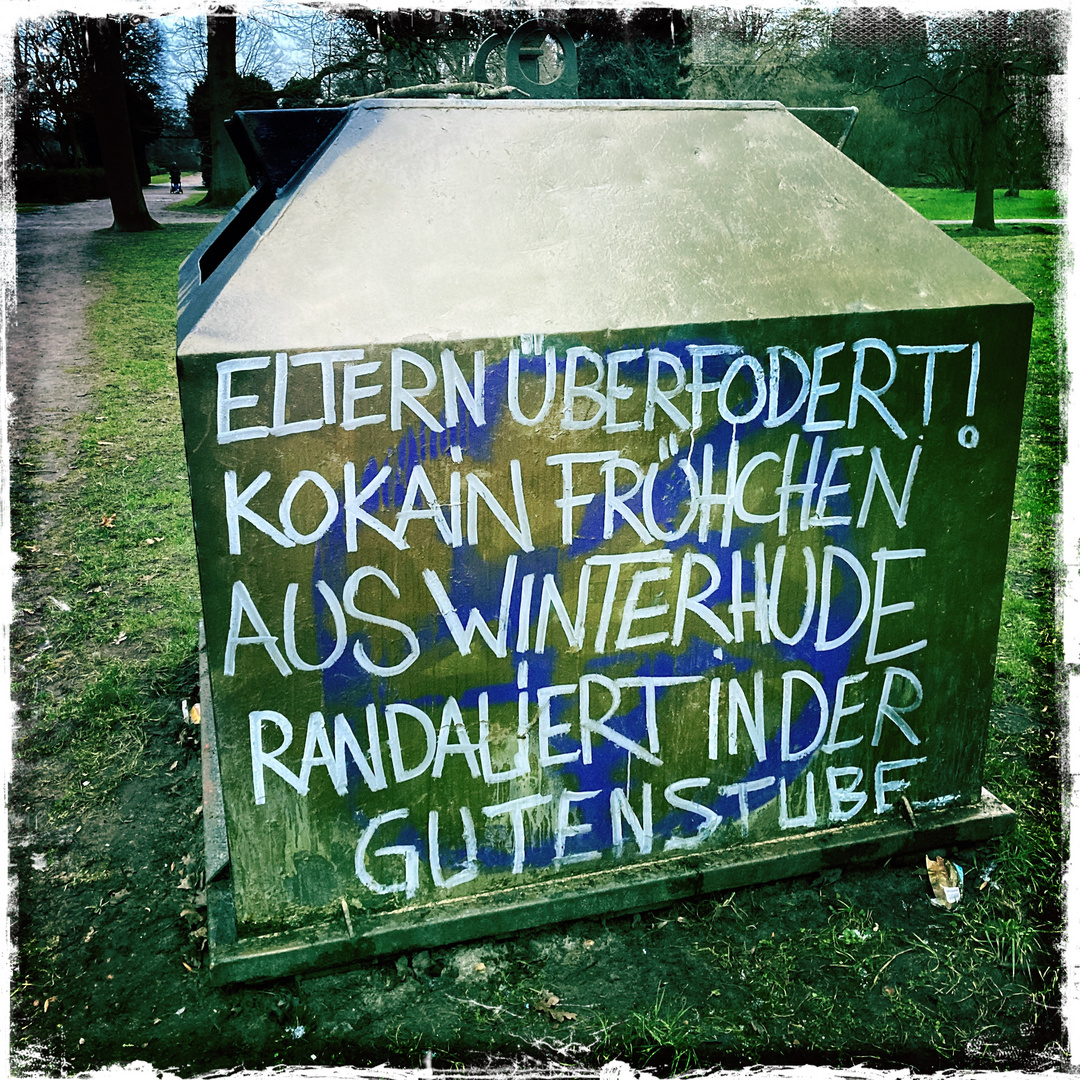 ELTERN ÜBERFODERT!
KOKAIN FRÜHCHEN
AUS WINTERHUDE
RANDALIERT IN DER
GUTENSTUBE